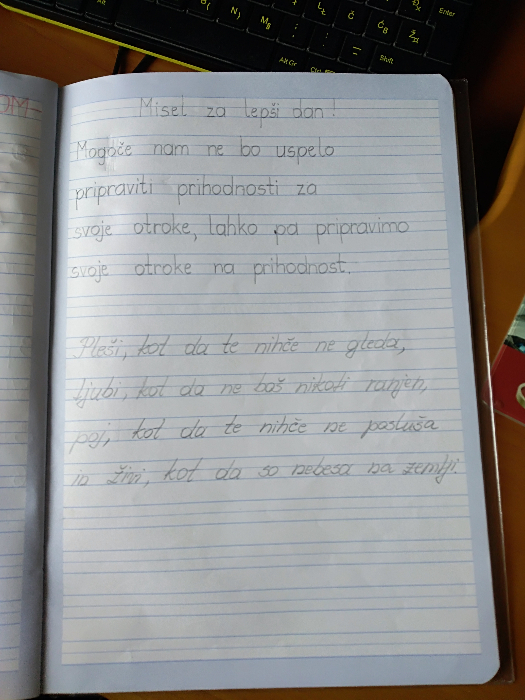 Misel za lepši dan!
Mogoče nam ne bo uspelo
pripraviti prihodnosti za
svoje otroke, lahko pa pripravimo
svoje otroke na prihodnost.
Pleši, kot da te nihče ne gleda,
ljubi, kot da ne boš nikoli ranjen,
poj, kot da te nihče ne posluša
in živi, kot da so nebesa na zemlji.